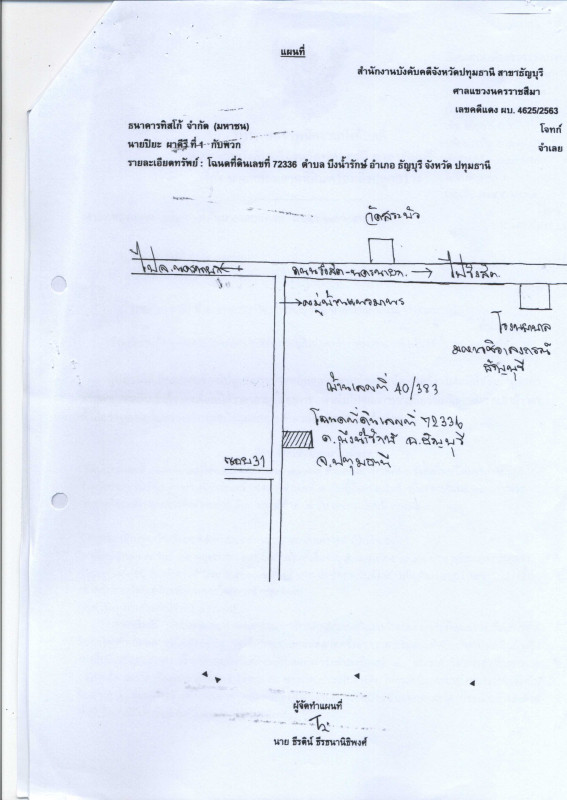 แผนที่
สำนักงานบังคับคดีจังหวัดปทุมธานี สาขาธัญบุรี
ศาลแขวงนครราชสีมา
เลขคดีแดง ผบ. 4625/2563
ธนาคารทิสโก้ จำกัด (มหาชน)
โจทก์
นายปิยะ ผาคีรี ที่ 1 กับพวก
จำเลย
รายละเอียดทรัพย์ : โฉนดที่ดินเลขที่ 72336 ตำบล บึงน้ำรักษ์ อำเภอ ธัญบุรี จังหวัด ปทุมธานี
วัดสระบัว
ไป จ.นครนายก
ถนนรังสิต-นครนายก
ไปรังสิต
โรงพยาบาล
ธัญบุรี
บ้านเลขที่ 40/383
โฉนดที่ดินเลขที่ 72336
ต.บึงน้ำรักษ์ อ.ธัญบุรี
จ.ปทุมธานี
ซอย 31
ผู้จัดทำแผนที่
นาย ธีรดิน์ ธีรธนานิธิพงศ์